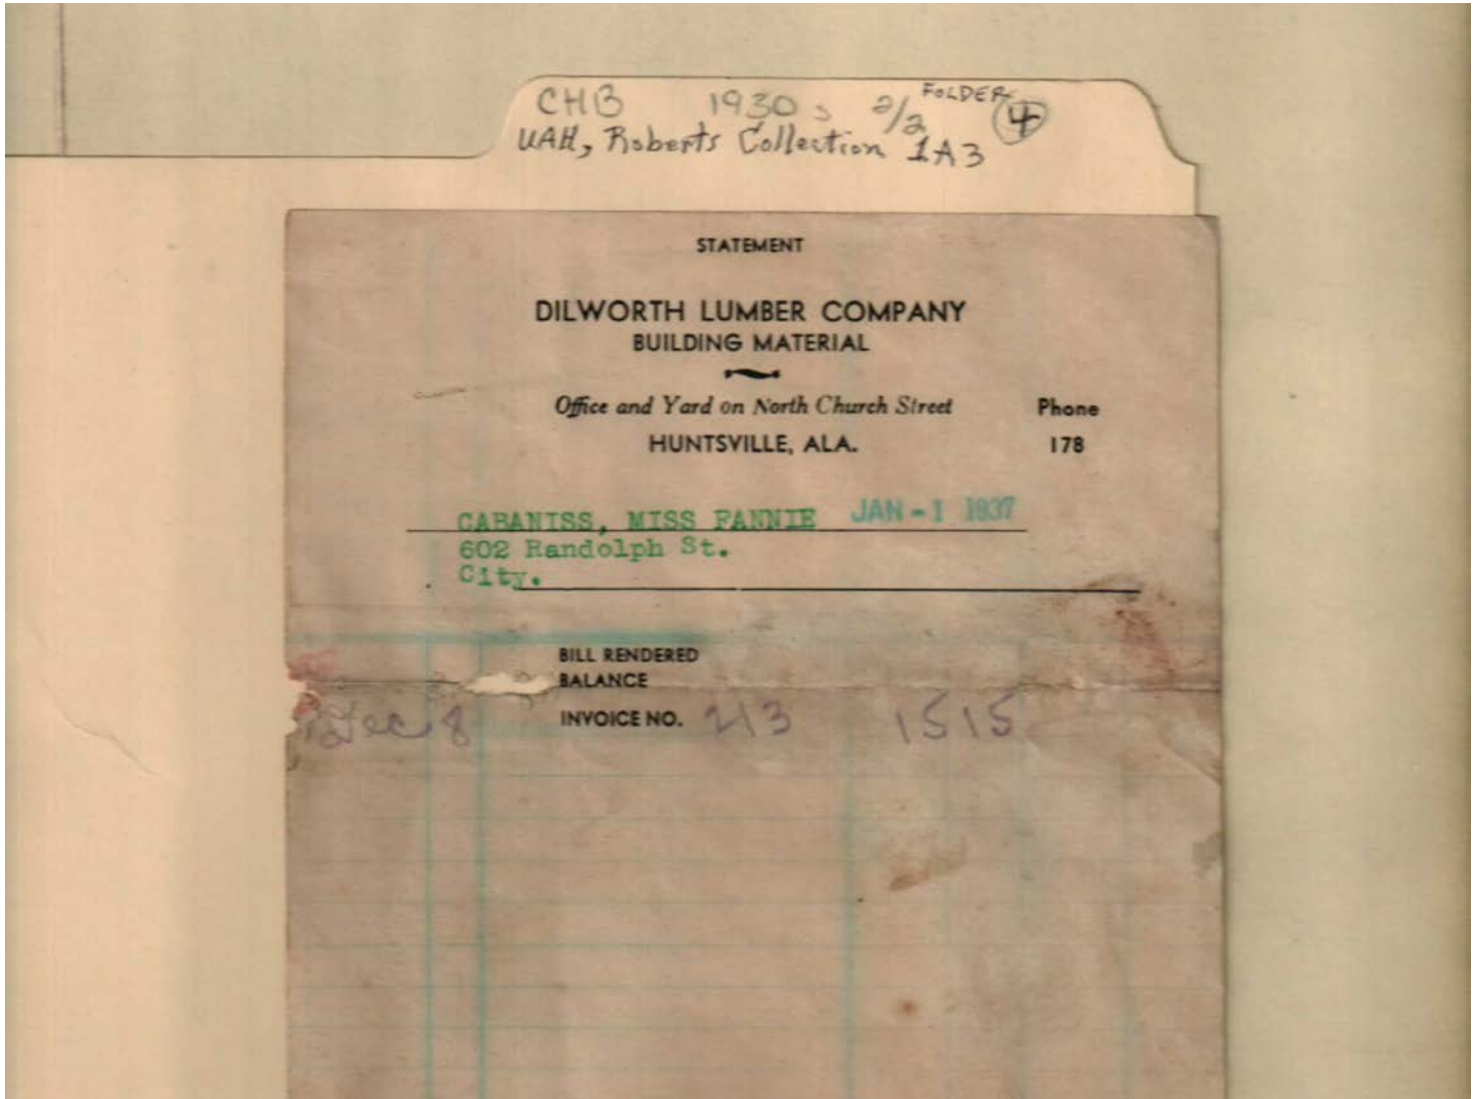 CHB 1930s 2/2 FOLDER 4
UAH, Roberts Collection 1A3
STATEMENT
DILWORTH LUMBER COMPANY
BUILDING MATERIAL
Office and Yard on North Church Street Phone
HUNTSVILLE, ALA. 178
CABANISS, MISS FANNIE JAN-1 1937
602 Randolph St.
City.
BILL RENDERED
BALANCE
Dec 8 INVOICE NO. 213 1515